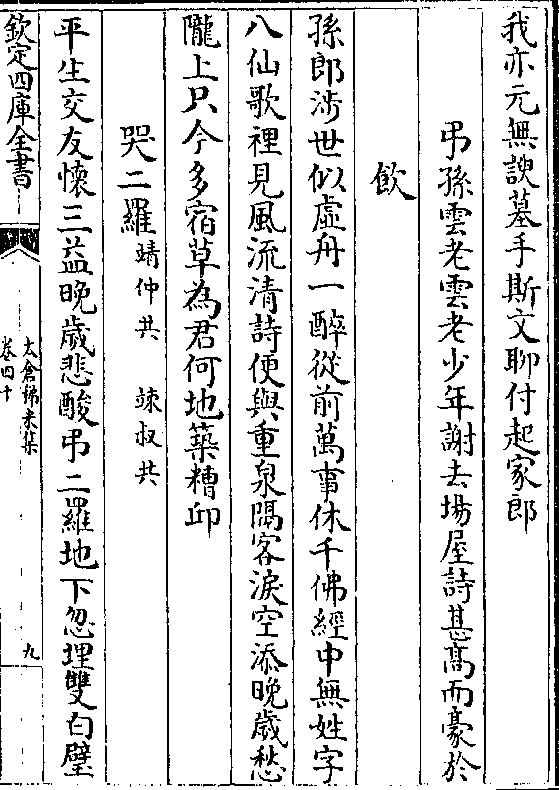 我亦元無諛墓手斯文聊付起家郎
弔孫雲老雲老少年謝去場屋詩甚髙而豪於
飲
孫郎涉世似虛舟一醉從前萬事休千佛經中無姓字
八仙歌裡見風流清詩便與重泉隔客淚空添晩歲愁
隴上只今多宿草為君何地築糟邱
哭二羅靖仲共 竦叔共
平生交友懷三益晩歲悲酸弔二羅地下忽埋雙白璧
欽定四庫全書
太倉稊米集
卷四十
九